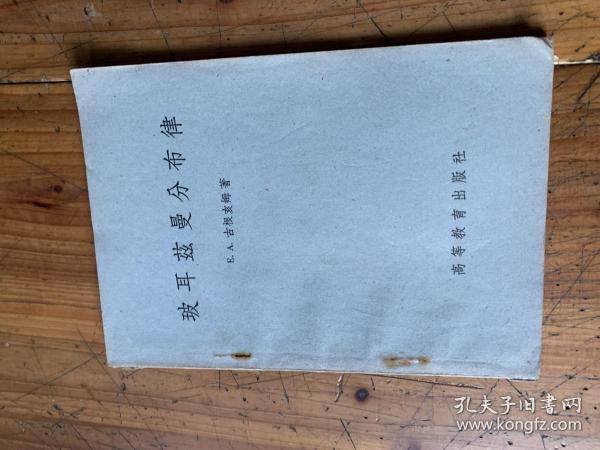 玻耳兹曼分布律
E. A. 古根亥姆著
高等教育出版社
孔夫子旧書网
www.kongfz.com